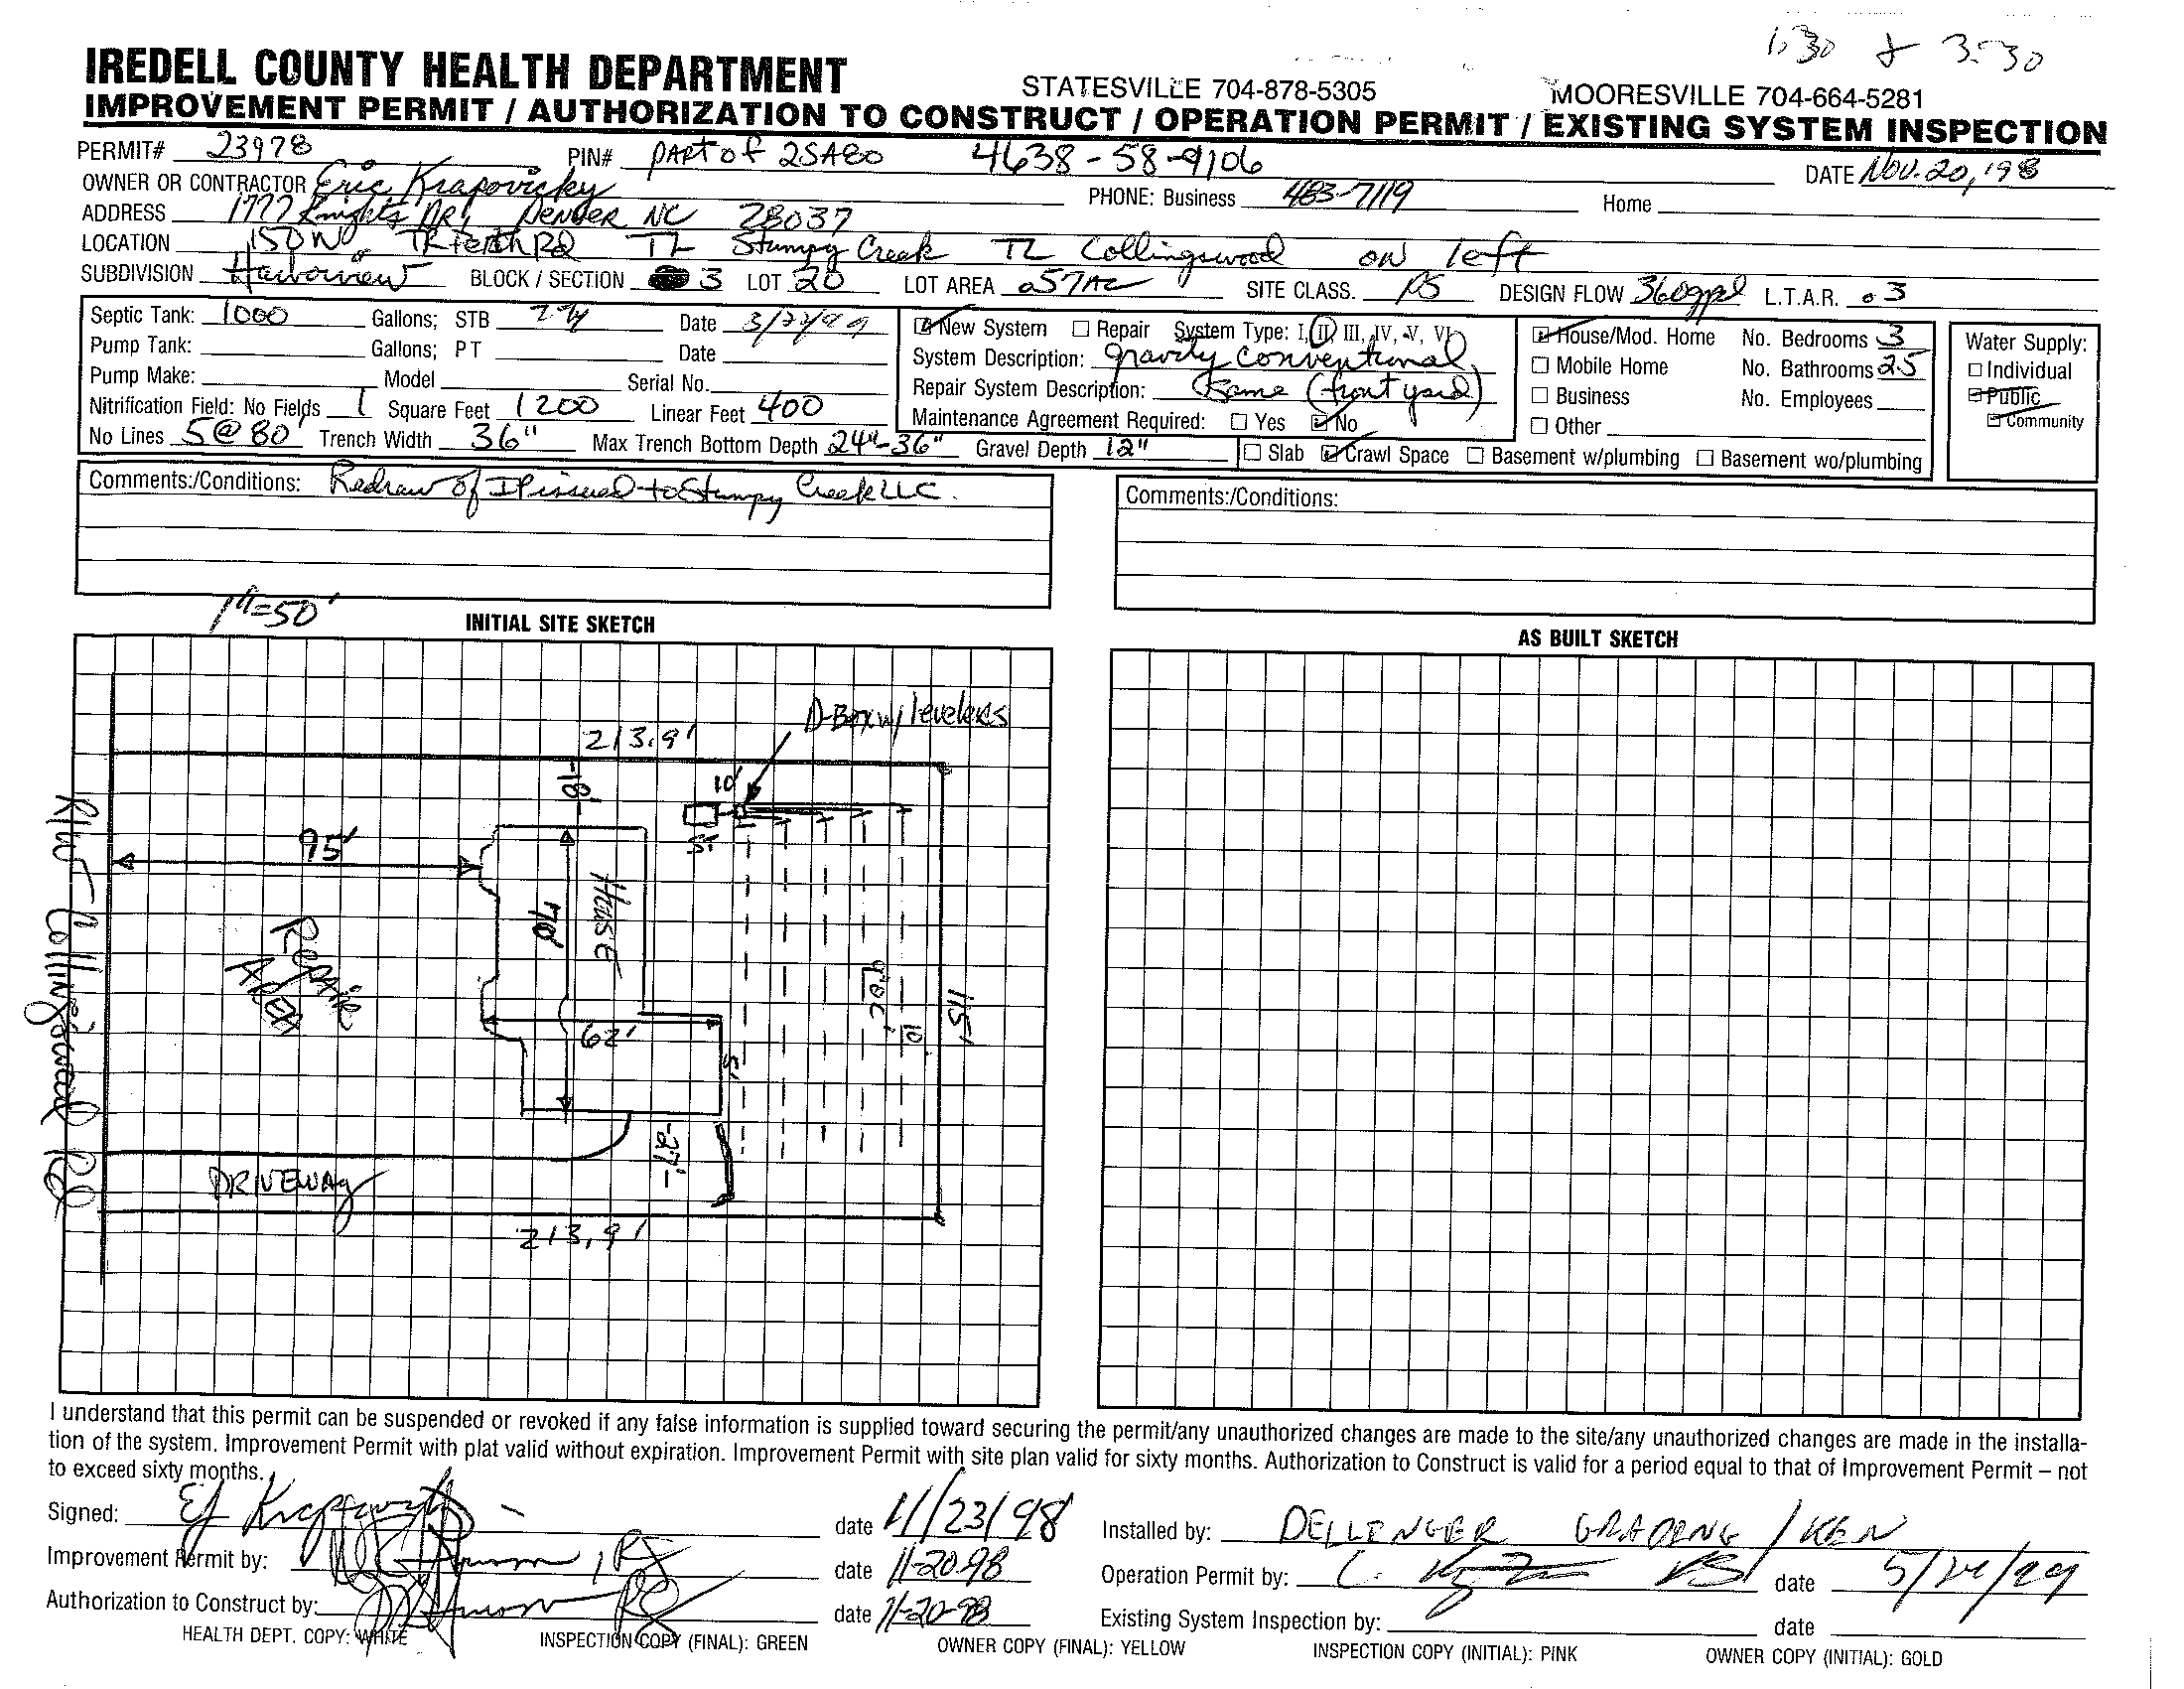 1:30 & 3:30
IREDELL COUNTY HEALTH DEPARTMENT STATESVILLE 704-878-5305 MOORESVILLE 704-664-5281
IMPROVEMENT PERMIT / AUTHORIZATION TO CONSTRUCT / OPERATION PERMIT / EXISTING SYSTEM INSPECTION
PERMIT# 23978 PIN# PART of 2SA80 4638-58-9106 DATE Nov. 20, '98
OWNER OR CONTRACTOR Eric Krapovicky PHONE: Business 483-7119 Home
ADDRESS 1777 Knights DR, Denver NC 28037
LOCATION 150 W TR Perth Rd TL Stumpy Creek TL Collingswood on left
SUBDIVISION Harborview BLOCK / SECTION 3 LOT 20 LOT AREA .57AC SITE CLASS. PS DESIGN FLOW 360gpd L.T.A.R. .3
Septic Tank: 1000 Gallons; STB Date 3/22/99
Pump Tank: Gallons; PT Date
Pump Make: Model Serial No.
Nitrification Field: No Fields 1 Square Feet 1200 Linear Feet 400
No Lines 5@80' Trench Width 36" Max Trench Bottom Depth 24"-36" Gravel Depth 12"
New System Repair System Type: I, II, III, IV, V, VI
System Description: gravity conventional
Repair System Description: Same (front yard)
Maintenance Agreement Required: Yes No
Slab Crawl Space Basement w/plumbing Basement wo/plumbing
House/Mod. Home No. Bedrooms 3
Mobile Home No. Bathrooms 2.5
Business No. Employees
Other
Water Supply:
Individual
Public
Community
Comments:/Conditions: Redraw of IP issued to Stumpy Creek LLC.
Comments:/Conditions:
1"=50'
INITIAL SITE SKETCH
AS BUILT SKETCH
D-Box w/ levelers
213.9'
18'
10'
5'
95'
HOUSE
70'
REPAIR
AREA
R/W - Collingswood Rd
9'OC
115'
10'
62'
5'
-27'-
DRIVEWAY
213.9'
I understand that this permit can be suspended or revoked if any false information is supplied toward securing the permit/any unauthorized changes are made to the site/any unauthorized changes are made in the installa-
tion of the system. Improvement Permit with plat valid without expiration. Improvement Permit with site plan valid for sixty months. Authorization to Construct is valid for a period equal to that of Improvement Permit – not
to exceed sixty months.
Signed: date 11/23/98
Improvement Permit by: RS date 11-20-98
Authorization to Construct by: RS date 11-20-98
Installed by: DELLINGER GRADING / KEN
Operation Permit by: RS date 5/24/99
Existing System Inspection by: date
HEALTH DEPT. COPY: WHITE INSPECTION COPY (FINAL): GREEN OWNER COPY (FINAL): YELLOW INSPECTION COPY (INITIAL): PINK OWNER COPY (INITIAL): GOLD